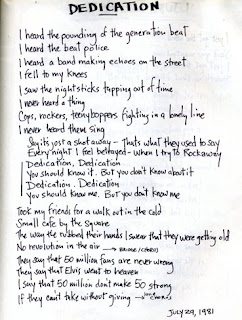 DEDICATION
I heard the pounding of the generation beat
I heard the beat police
I heard a band making echoes on the street
I fell to my knees
I saw the nightsticks tapping out of time
I never heard a thing
Cops, rockers, teenyboppers fighting in a lonely line
I never heard them sing
Say it's just a shot away - Thats what they used to say
Every night I feel betrayed - when I try to Rockaway
Dedication. Dedication
You should know it. But you don't know about it
Dedication. Dedication
You should know me. But you don't know me
Took my friends for a walk out in the cold
Small cafe by the square
The way the rubbed their hands I swear that they were getting old
No revolution in the air →
They say that 50 million fans are never wrong
They say that Elvis went to heaven
I say that 50 million don't make 50 strong
If they can't take without giving →
JULY 29, 1981